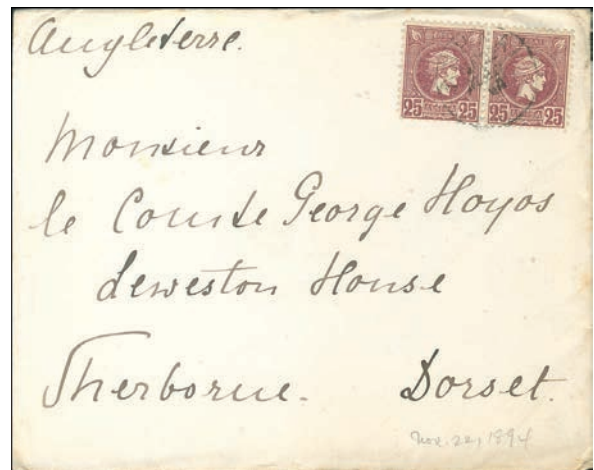 Angleterre.
25 25 25 25
Monsieur
le Comte George Hoyos
Leweston House
Sherborne. Dorset.
Nov. 22, 1894